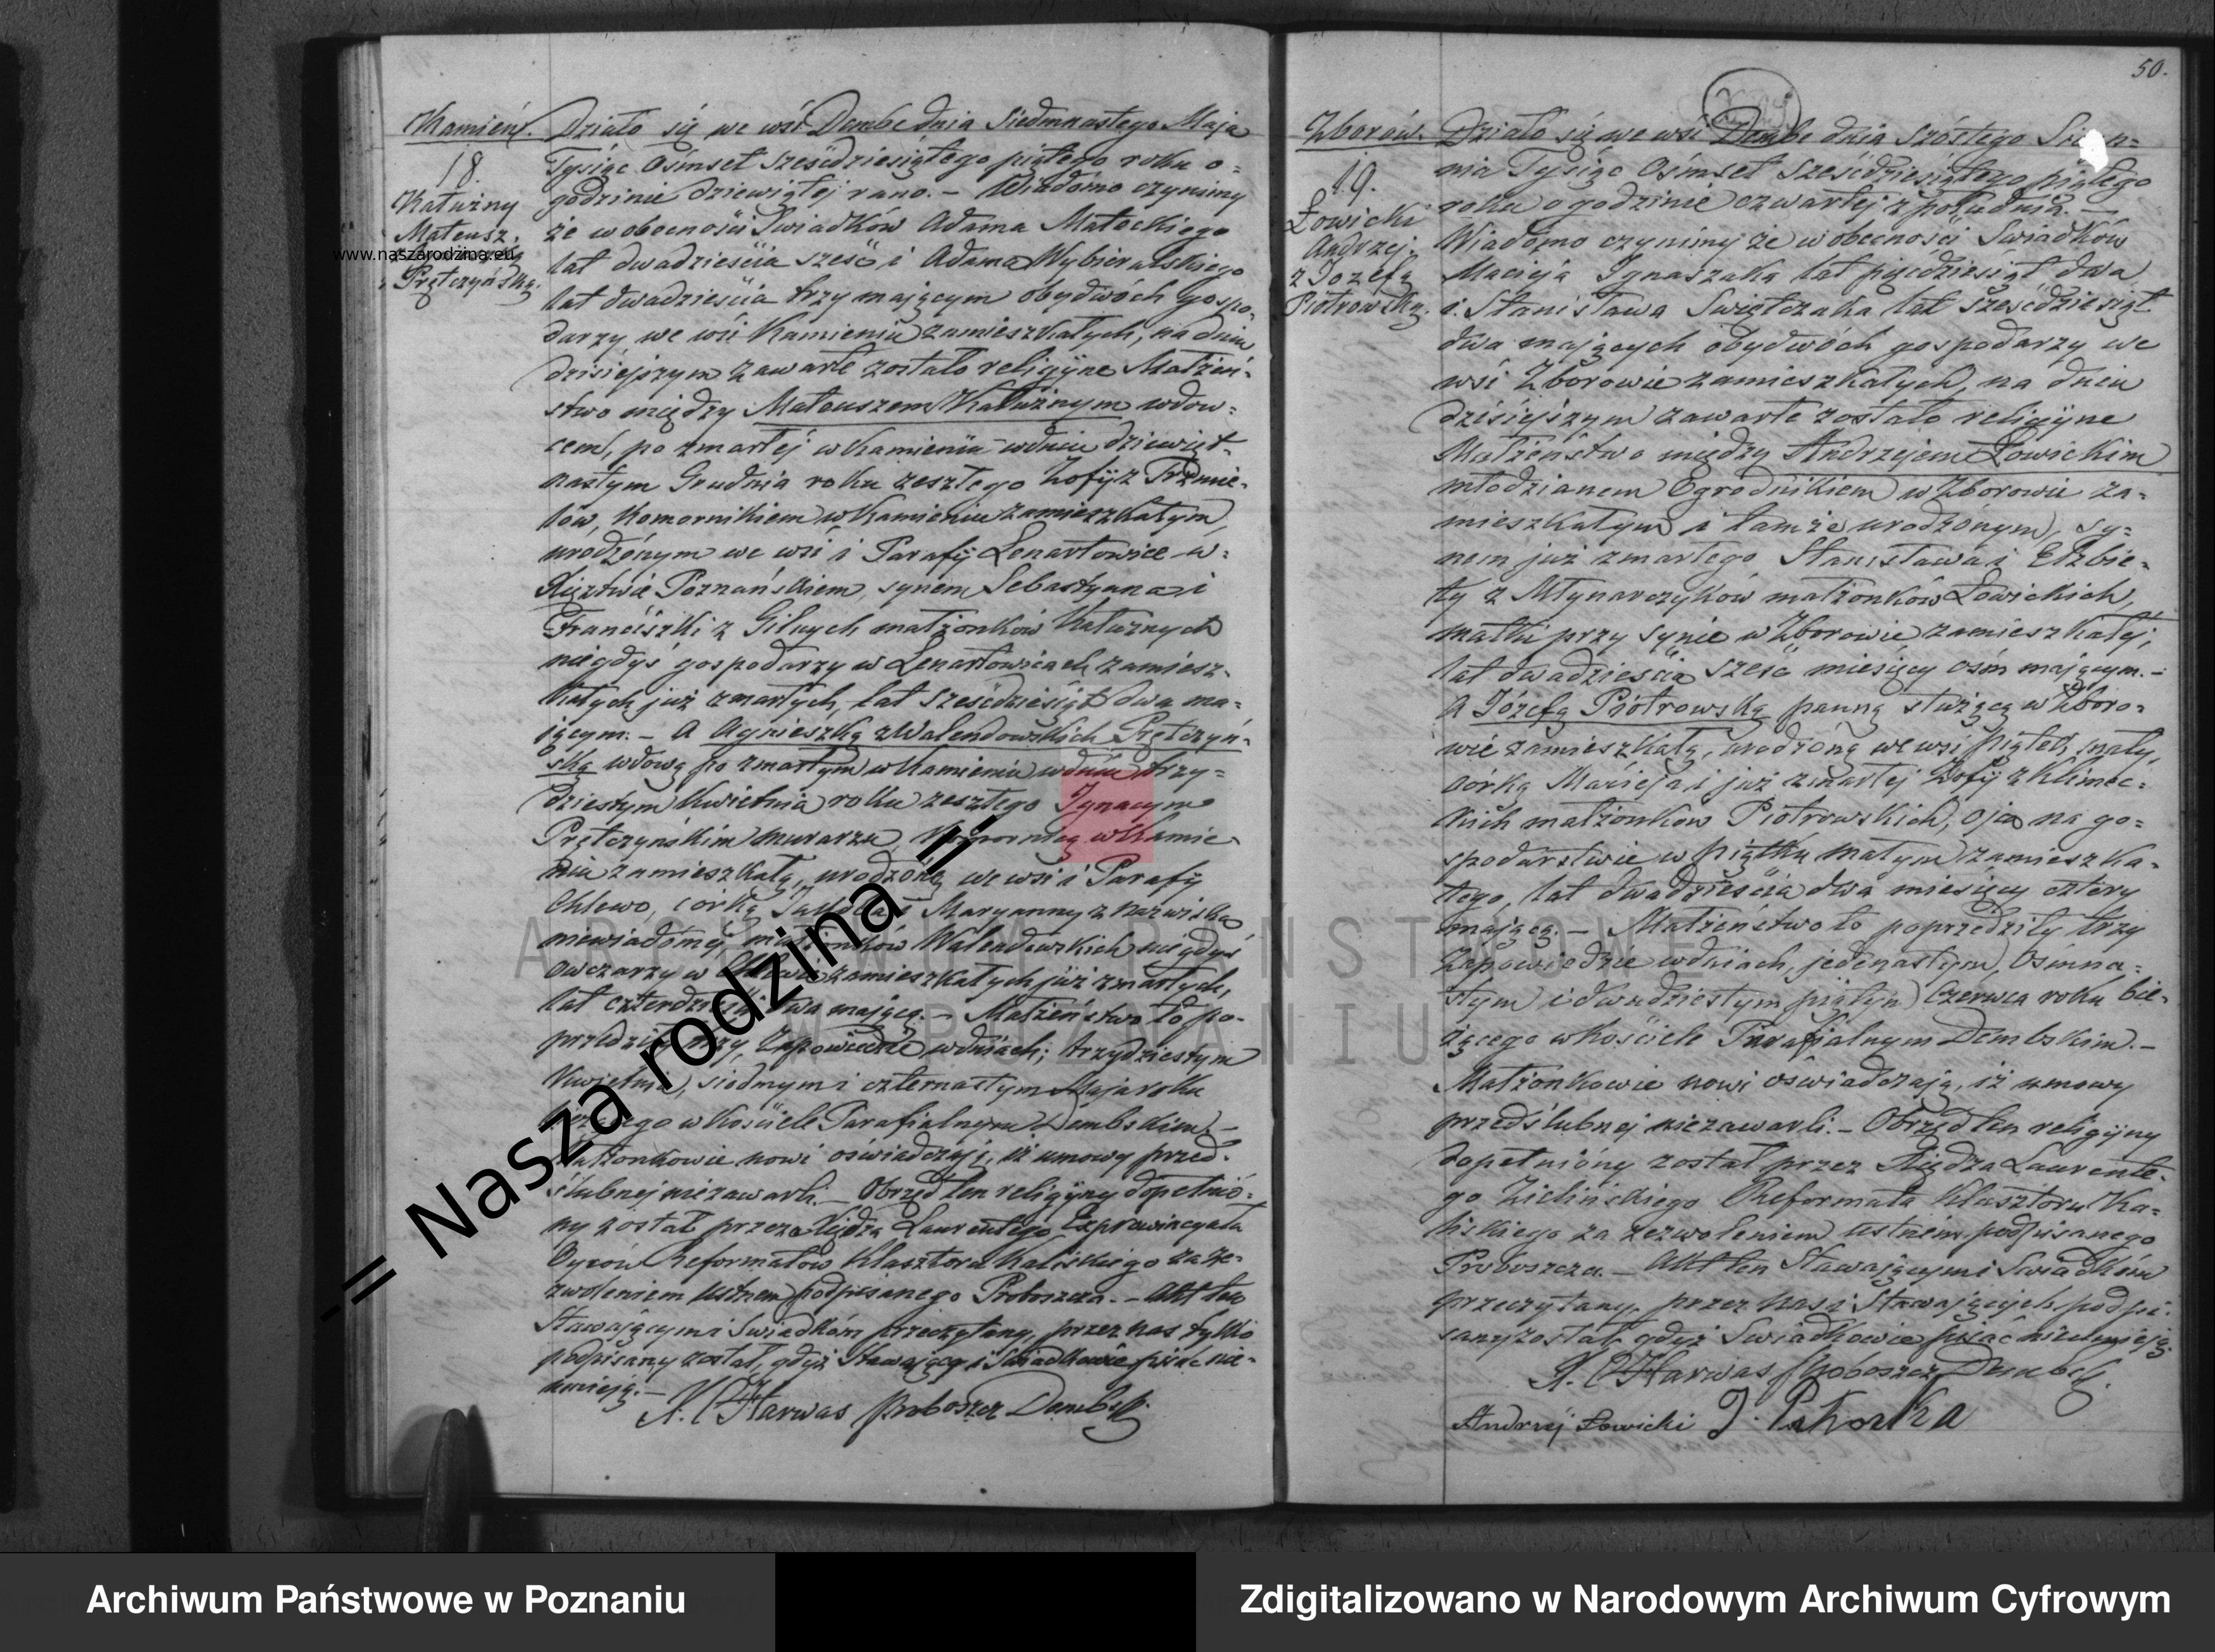 Kamień.
18.
Kałużny
Mateusz.
Prętczyńską.
www.naszarodzina.eu
Działo się we wsi Dembe dnia Siedmnastego Maja
Tysiąc Ośmset Sześćdziesiątego piątego roku o=
godzinie dziewiątej rano. – Wiadomo czynimy
że w obecności Świadków Adama Małeckiego
lat dwadzieścia sześć i Adama Wybieralskiego
lat dwadzieścia trzy mającym obydwóch gospo-
darzy we wsi Kamieniu zamieszkałych, na dniu
dzisiejszym zawarte zostało religijne Małżeń-
stwo między Mateuszem Kałużnym wdow=
cem, po zmarłej w Kamieniu w dniu dziewięt-
nastym Grudnia roku zeszłego Zofiji z
Komornikiem w Kamieniu zamieszkałym,
urodzonym we wsi i Parafij Lenartowice w=
Księztwie Poznańskiem, synem Sebastyana i
Franciszki z małżonków Kałużnych
niegdyś gospodarzy w Lenartowicach zamiesz-
kałych już zmarłych, lat sześćdziesiąt dwa ma=
jącym. – A Agnieszką z Walendowskich Prętczyń-
ską wdową po zmarłym w Kamieniu w dniu trzy=
dziestym Kwietnia roku zeszłego Ignacym
Prętczyńskim murarzu, Komornicą w Kamie-
niu zamieszkałą, urodzoną we wsi i Parafij
Chlewo, córką Jakóba i Maryanny z nazwiska
niewiadomej małżonków Walendowskich niegdyś
owczarzy w Chlewie zamieszkałych już zmarłych,
lat czterdzieści dwa mającą. – Małżeństwo to po-
przedziły trzy Zapowiedzie w dniach; trzydziestym
Kwietnia, siódmym i czternastym Maja roku
bieżącego w Kościele Parafialnym Dembskim. –
Małżonkowie nowi oświadczają, iż umowy przed-
ślubnej niezawarli. – Obrzęd ten religijny dopełnio=
ny został przez Xiędza Laurentego Exprowincyała
Oycow Reformatów Klasztoru Kaliskiego za ze-
zwoleniem ustnem podpisanego Proboszcza. – Akt ten
Stawającym i Świadkom przeczytany, przez nas tylko
podpisany został, gdyż Stawający i Świadkowie pisać nie-
umieją. –
X. Harwas Proboszcz Dembski
50.
Zborów.
19.
Łowicki
Andrzej.
z Józefą
Piotrowską.
Działo się we wsi Dembe dnia Szóstego
nia Tysiąc Ośmset Sześćdziesiątego piątego
roku o godzinie czwartej z południa. –
Wiadomo czynimy że w obecności Świadków
Macieja Ignaszaka lat pięćdziesiąt dwa
i Stanisława Świętczaka lat sześćdziesiąt
dwa mających obydwóch gospodarzy we
wsi Zborowie zamieszkałych, na dniu
dzisiejszym zawarte zostało religijne
Małżeństwo między Andrzejem Łowickim
młodzianem Ogrodnikiem w Zborowie za-
mieszkałym i tamże urodzonym, sy=
nem już zmarłego Stanisława i Elżbie-
ty z Młynarczyków małżonków Łowickich,
matki przy synie w Zborowie zamieszkałej,
lat dwadzieścia sześć miesięcy ośm mającym. –
A Józefą Piotrowską panną służącą w Zboro=
wie zamieszkałą, urodzoną we wsi Piątek mały,
córką Macieja i już zmarłej Zofij z Klimec=
kich małżonków Piotrowskich, ojca na go=
spodarstwie w Piątku małym zamieszka-
łego, lat dwadzieścia dwa miesięcy cztery
mającą. – Małżeństwo to poprzedziły trzy
Zapowiedzie w dniach, jedenastym, Ośmna=
stym i dwudziestym piątym Czerwca roku bie-
żącego w Kościele Parafialnym Dembskim. –
Małżonkowie nowi oświadczają, iż umowy
przedślubnej niezawarli. – Obrzęd ten religijny
dopełniony został przez Xiędza Laurente-
go Zielińskiego Reformata Klasztoru Ka=
liskiego za zezwoleniem ustnem podpisanego
Proboszcza. – Akt ten Stawającym i Świadkom
przeczytany, przez nas i Stawających podpi-
sany został, gdyż Świadkowie pisać nieumieją.
X. Harwas Proboszcz Dembski.
Andrzej Łowicki
ARCHIWUM PAŃSTWOWE
W POZNANIU
-= Nasza rodzina =-
Archiwum Państwowe w Poznaniu
Zdigitalizowano w Narodowym Archiwum Cyfrowym